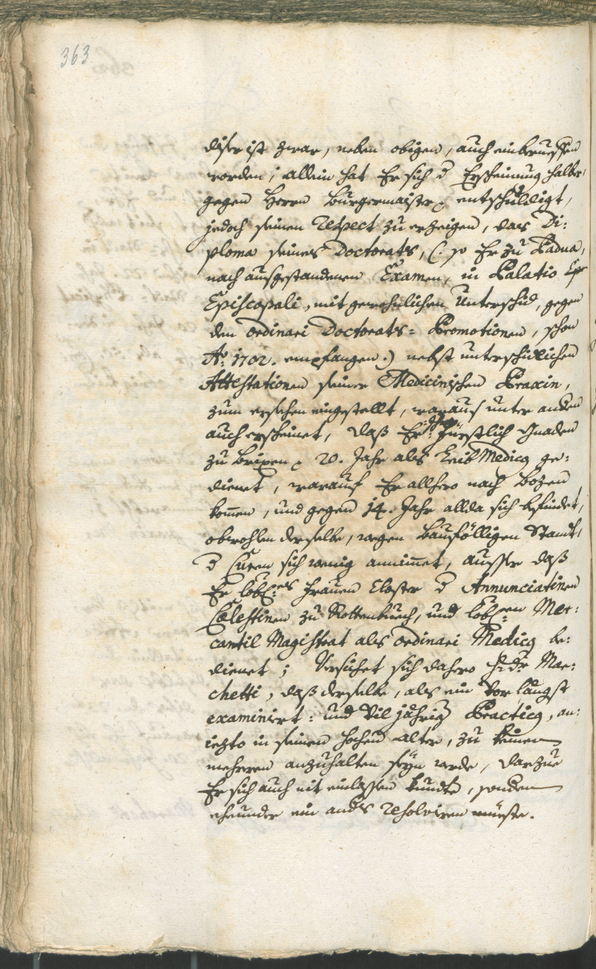 363
diser ist zwar, neben obigen, auch einberueffen
worden; allein hat Er sich d Erscheinung halber,
gegen Herrn Burgermaister entschuldigt,
jedoch seinen Respect zu erzeigen, das Di:
ploma seines Doctorats, (: so Er zu Padua,
nach ausgestandenen Examen, in Palatio
Episcopali, mit gewohnlichen Unterschid, gegen
den ordinari Doctorats=Promotionen, schon
Aō: 1702. empfangen:) nebst unterschidlichen
Attestationen seiner Medicinischen Praxin,
zum ersehen eingestellt, woraus unter anden
auch erscheinet, daß Er Fürstlich Gnaden
zu Brixen 20. Jahr als Leib Medicq ge:
dienet, worauf Er allhero nach Bozen
komen, und gegen 14. Jahr allda sich befindet,
obwohlen derselbe, wegen baufölligen Standts,
d Curen sich wenig annimet, ausser daß
Er löbl: Frauen Closter d Annunciatinen
Cælestinen zu Rottenbuech, und löbl:en Mer:
cantil Magistrat als ordinari Medicq be:
dienet; Versichet sich dahero H: Dr Mar:
chetti, daß derselbe, als ein Vor längst
examinirt: und Vil jähriger Practicq, an:
iezto in seinen hochen alter, zu keinem
mehreren anzuhalten seyn werde, darzue
Er sich auch nit einlassen kundte, sondern
eheunder ein anders resolviren mueste.